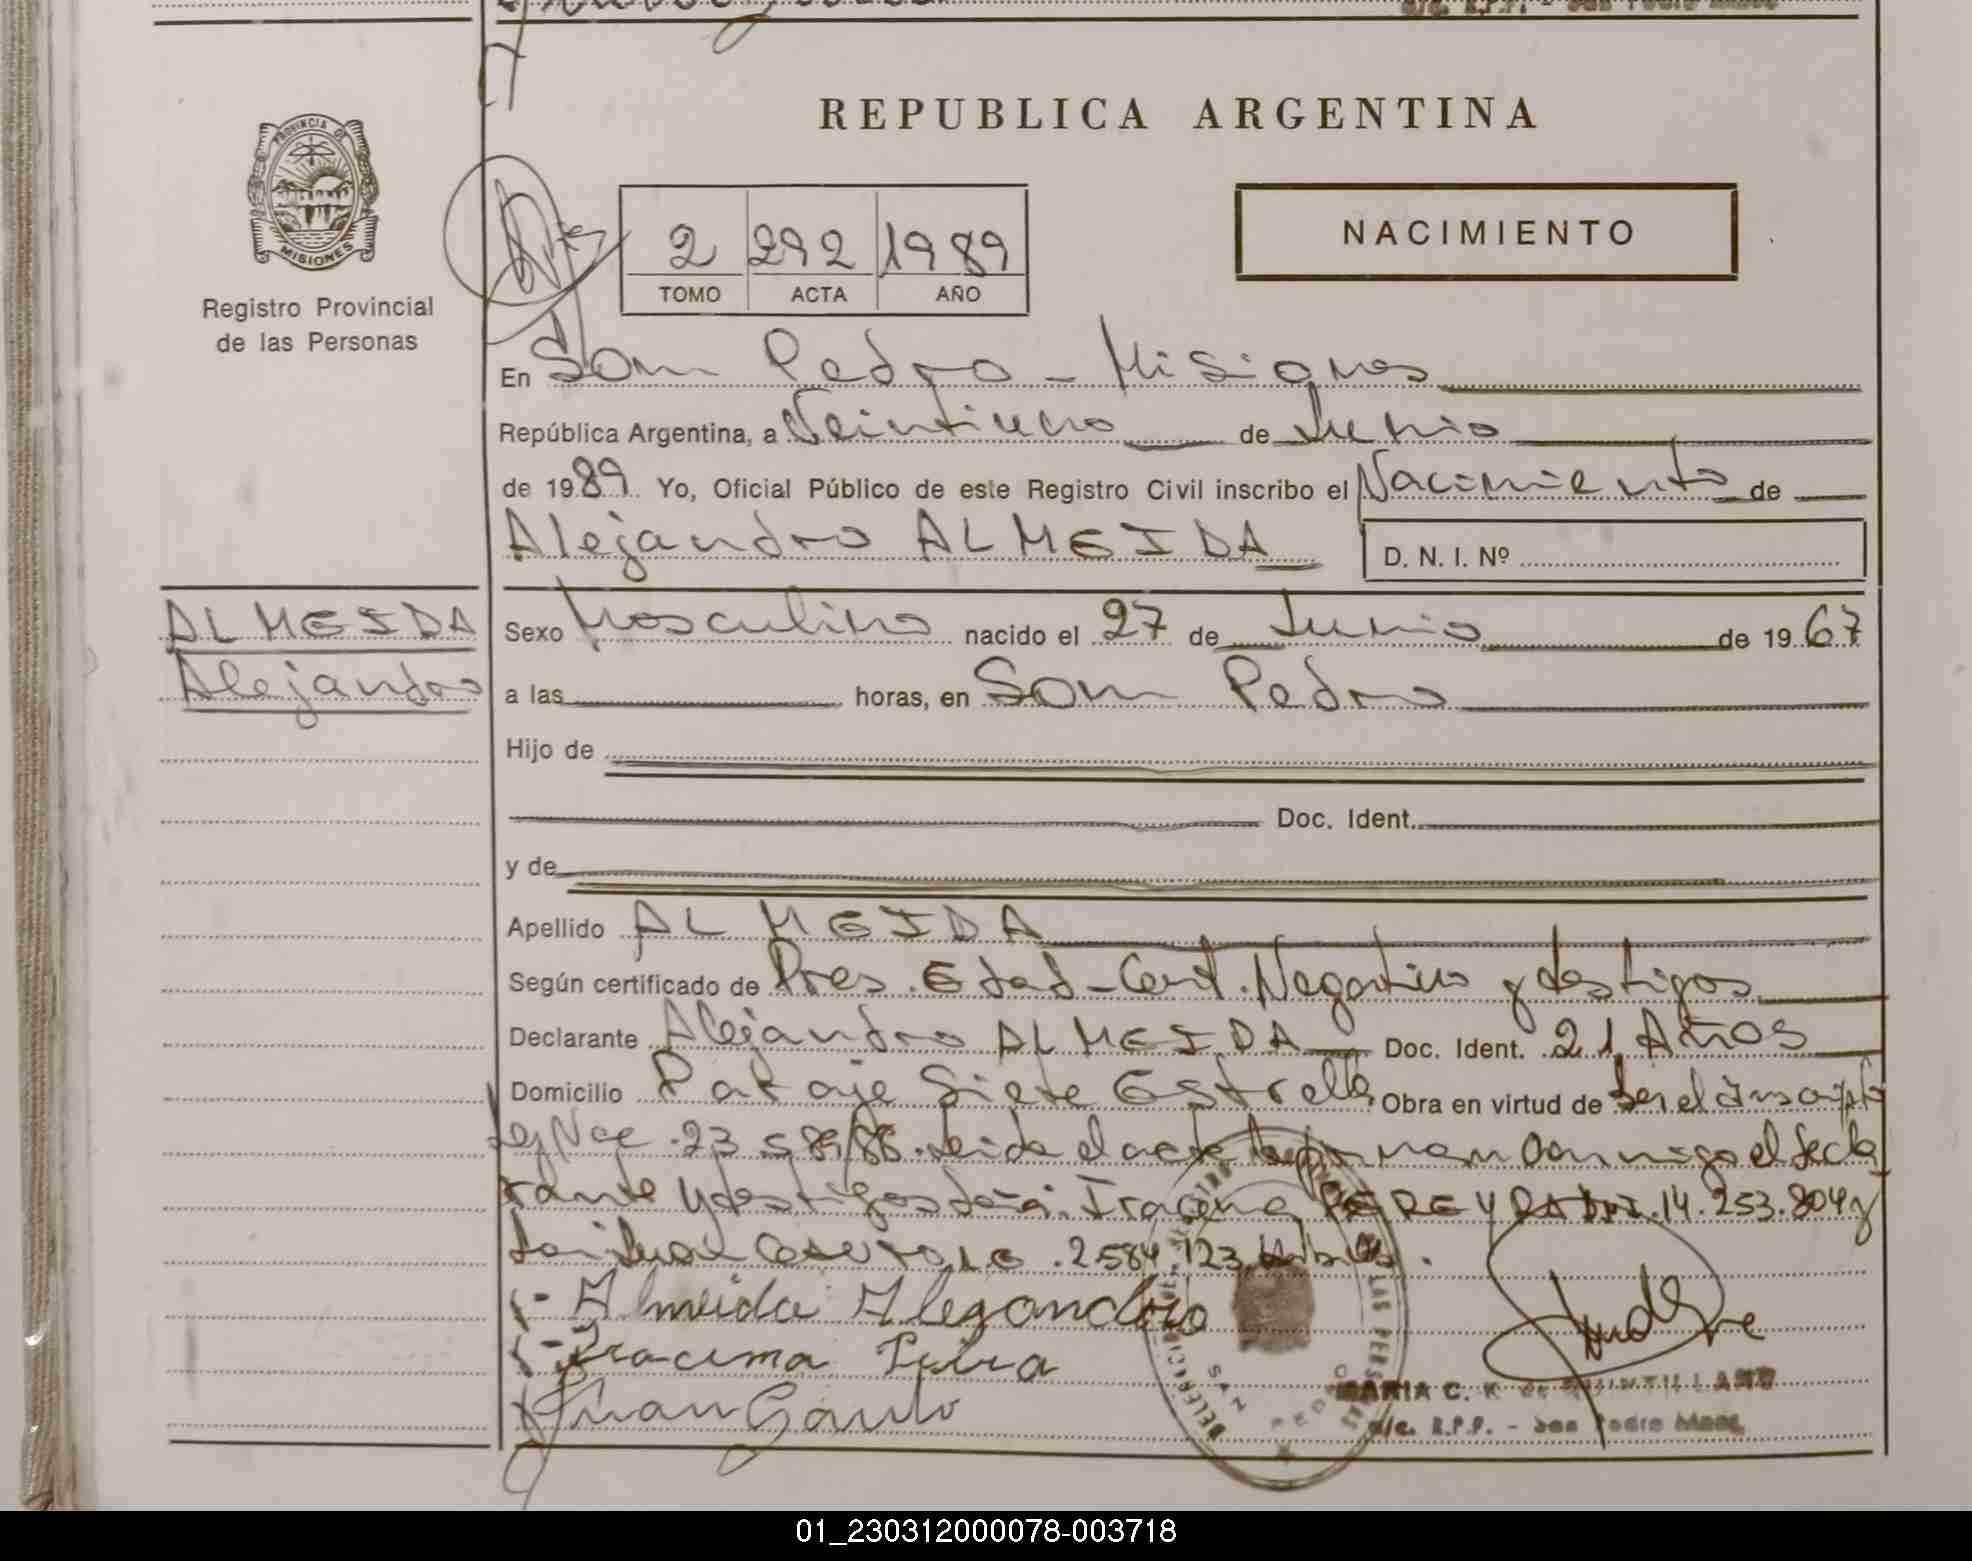 REPUBLICA ARGENTINA
PROVINCIA DE
MISIONES
Registro Provincial
de las Personas
2 292 1989
TOMO ACTA AÑO
NACIMIENTO
En San Pedro - Misiones
República Argentina, a Veintiuno de Junio
de 1989 Yo, Oficial Público de este Registro Civil inscribo el Nacimiento de
Alejandro ALMEIDA
D. N. I. Nº
ALMEIDA
Alejandro
Sexo Masculino nacido el 27 de Junio de 1967
a las horas, en San Pedro
Hijo de
Doc. Ident.
y de
Apellido ALMEIDA
Según certificado de Pres. Edad - Cert. Negativo y testigos
Declarante Alejandro ALMEIDA Doc. Ident. 21 Años
Domicilio Paraje Siete Estrella Obra en virtud de ser el inscripto
Ley Nac. 23.589/88. Leida el acta la firman conmigo el decla
rante y testigos Doña: Iracema PEREYRA DNI. 14.253.804 y
Don Juan 2584.123
- Almeida Alegandro
- Iracema
Juan
MARIA C. K. de QUINTILLANO
a/c. R.P.P. - San Pedro Mnes.
SAN PEDRO
01_230312000078-003718